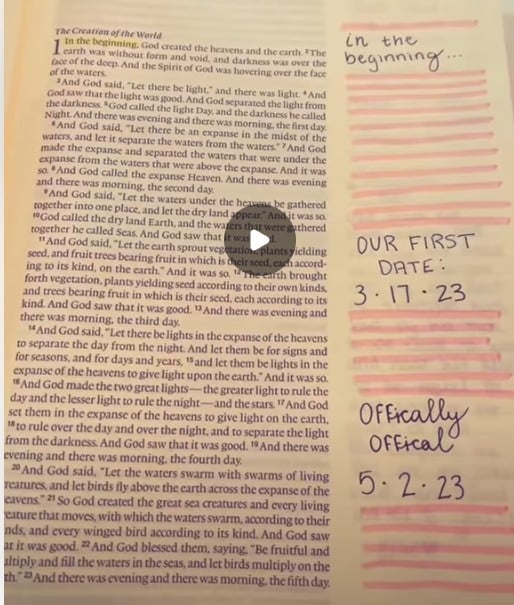 The Creation of the World
1 In the beginning, God created the heavens and the earth. 2The
earth was without form and void, and darkness was over the
face of the deep. And the Spirit of God was hovering over the face
of the waters.
3And God said, "Let there be light," and there was light. 4And
God saw that the light was good. And God separated the light from
the darkness. 5God called the light Day, and the darkness he called
Night. And there was evening and there was morning, the first day.
6And God said, "Let there be an expanse in the midst of the
waters, and let it separate the waters from the waters." 7And God
made the expanse and separated the waters that were under the
expanse from the waters that were above the expanse. And it was
so. 8And God called the expanse Heaven. And there was evening
and there was morning, the second day.
9And God said, "Let the waters under the heavens be gathered
together into one place, and let the dry land appear." And it was so.
10God called the dry land Earth, and the waters that were gathered
together he called Seas. And God saw that it was
11And God said, "Let the earth sprout vegetation, plants yielding
seed, and fruit trees bearing fruit in which is their seed, each accord-
ing to its kind, on the earth." And it was so. 12The earth brought
forth vegetation, plants yielding seed according to their own kinds,
and trees bearing fruit in which is their seed, each according to its
kind. And God saw that it was good. 13And there was evening and
there was morning, the third day.
14And God said, "Let there be lights in the expanse of the heavens
to separate the day from the night. And let them be for signs and
for seasons, and for days and years, 15and let them be lights in the
expanse of the heavens to give light upon the earth." And it was so.
16And God made the two great lights—the greater light to rule the
day and the lesser light to rule the night—and the stars. 17And God
set them in the expanse of the heavens to give light on the earth,
18to rule over the day and over the night, and to separate the light
from the darkness. And God saw that it was good. 19And there was
evening and there was morning, the fourth day.
20And God said, "Let the waters swarm with swarms of living
reatures, and let birds fly above the earth across the expanse of the
eavens." 21So God created the great sea creatures and every living
eature that moves, with which the waters swarm, according to their
nds, and every winged bird according to its kind. And God saw
at it was good. 22And God blessed them, saying, "Be fruitful and
ultiply and fill the waters in the seas, and let birds multiply on the
th." 23And there was evening and there was morning, the fifth day.
in the
beginning...
OUR FIRST
DATE:
3·17·23
OFFically
OFFical
5·2·23